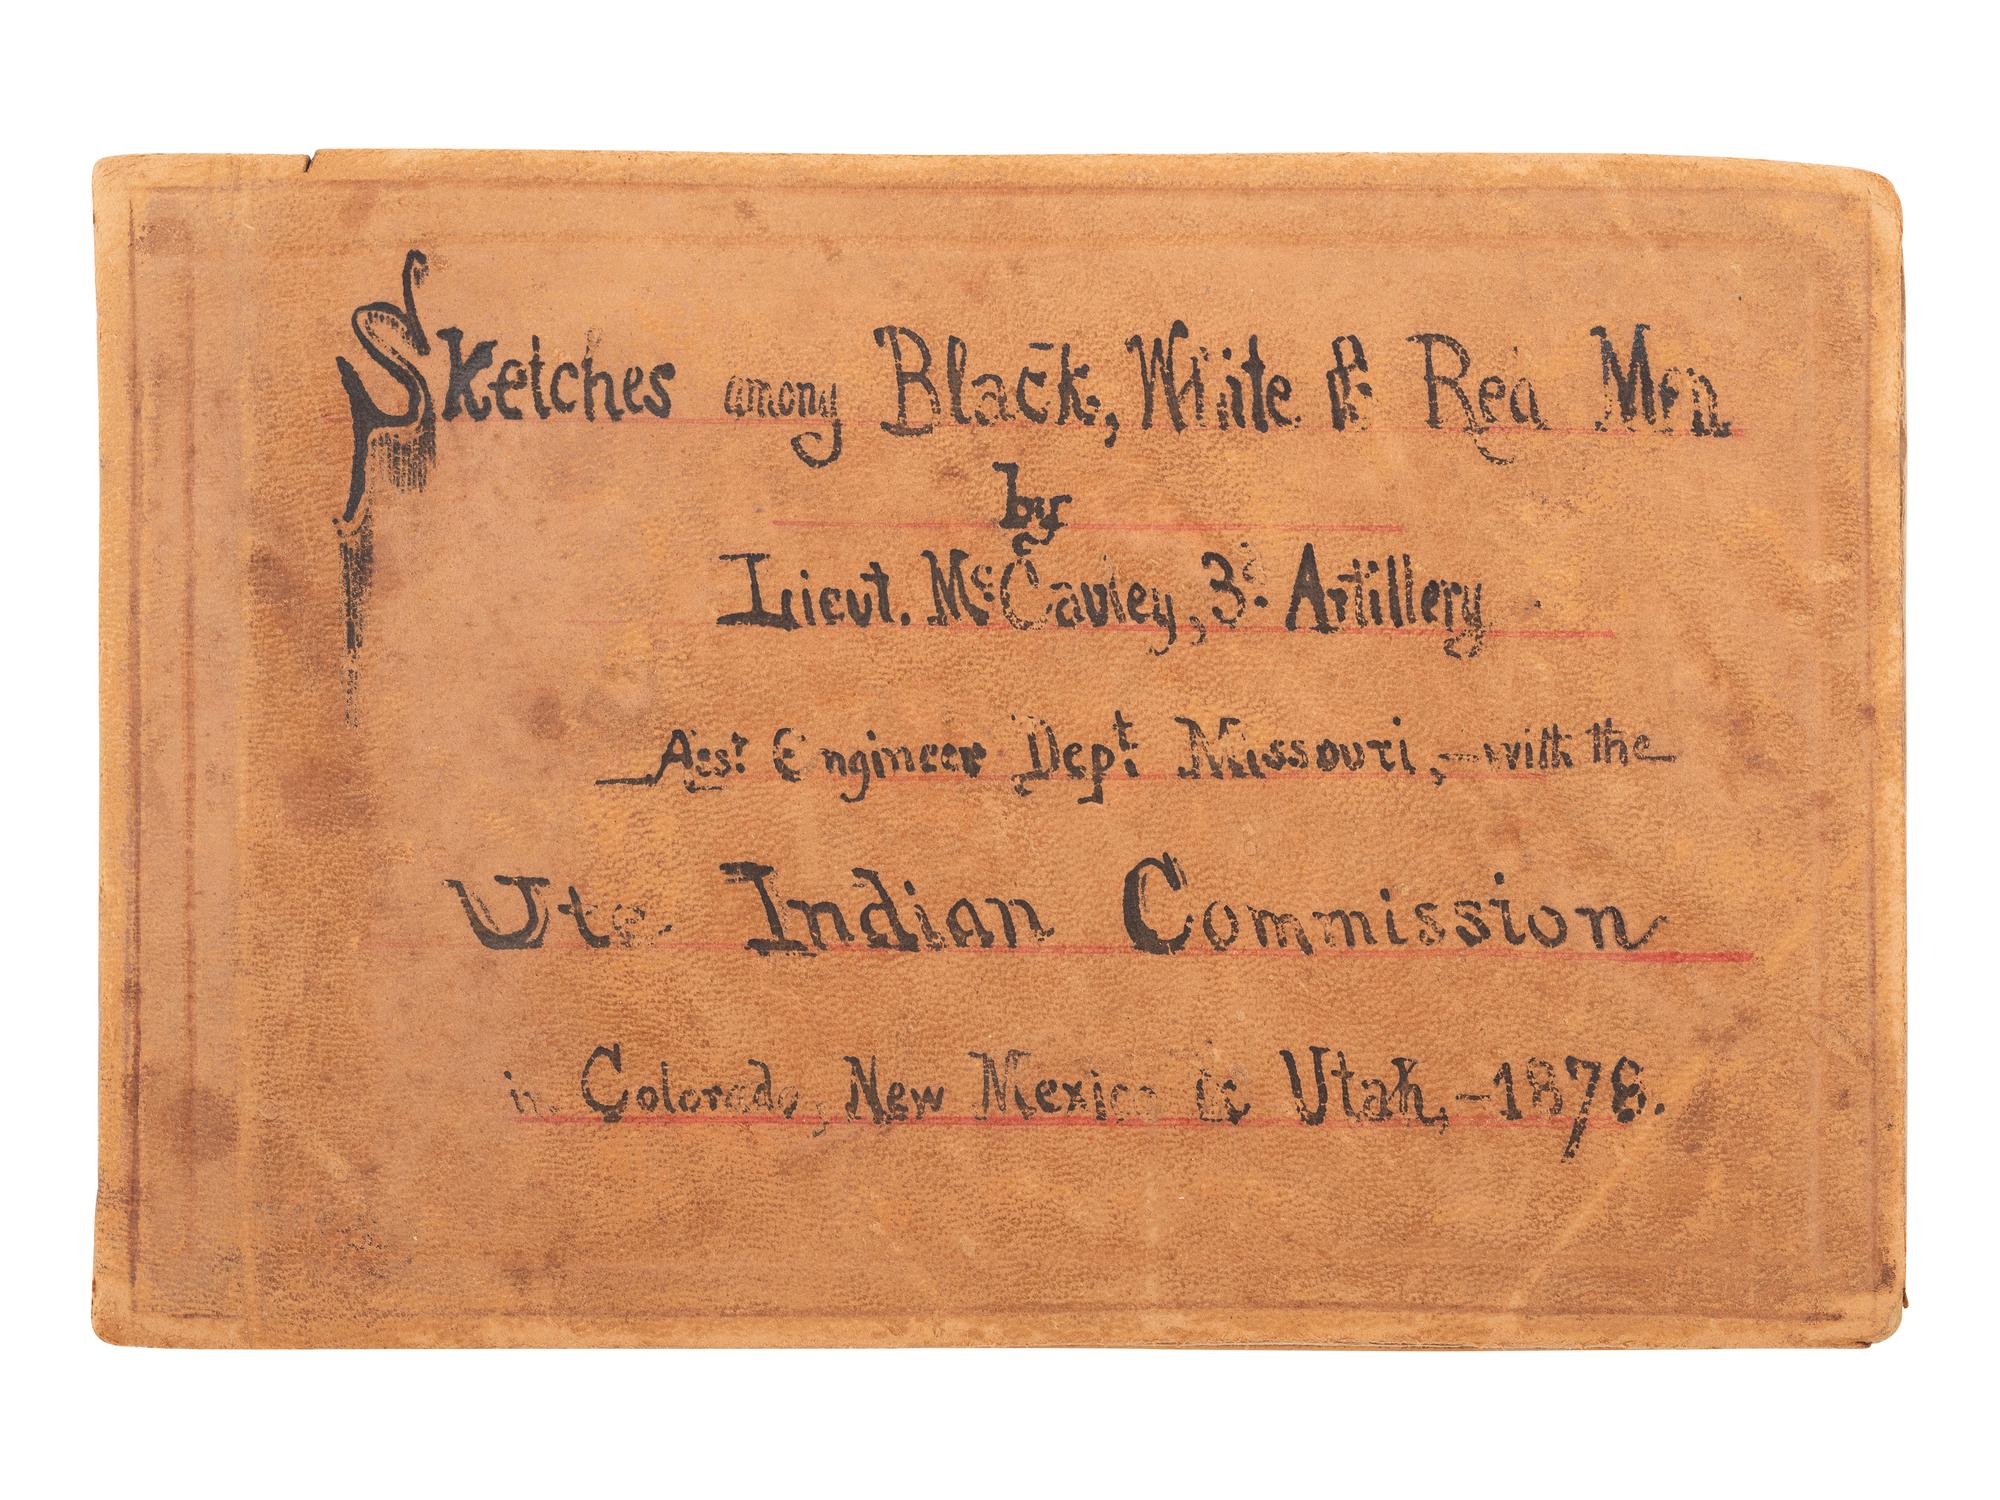 Sketches among Black, White & Red Men
by
Lieut. McCauley, 3d Artillery
Asst Engineer Dept Missouri, - with the
Ute Indian Commission
in Colorado, New Mexico & Utah, - 1878.